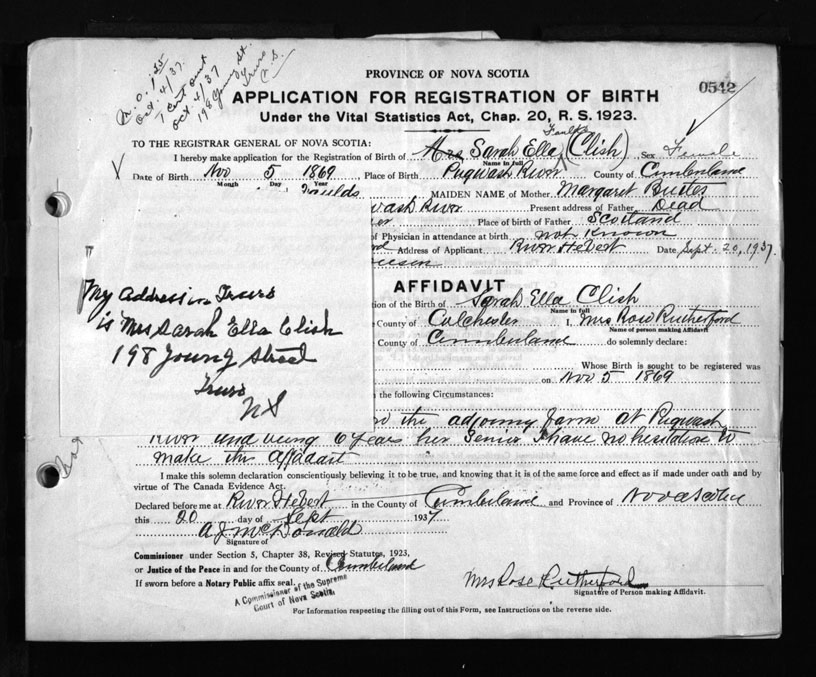 M.O. 1.25
Oct. 4/37.
1 cent out
Oct. 4/37
198 Young St.
Truro
C.S.
PROVINCE OF NOVA SCOTIA
0542
APPLICATION FOR REGISTRATION OF BIRTH
Under the Vital Statistics Act, Chap. 20, R. S. 1923.
TO THE REGISTRAR GENERAL OF NOVA SCOTIA:
I hereby make application for the Registration of Birth of Mrs Sarah Ella (Clish) Sex Female
Name in full
Date of Birth Nov 5 1869 Place of Birth Pugwash River County of Cumberland
Month Day Year
MAIDEN NAME of Mother Margaret
wash River Present address of Father Dead
Place of birth of Father Scotland
of Physician in attendance at birth not Known
Address of Applicant River Hebert Date Sept. 20, 1937.
AFFIDAVIT
tion of the Birth of Sarah Ella Clish
Name in full
e County of Colchester I, Mrs Rose Rutherford
Name of person making Affidavit
County of Cumberland do solemnly declare:
Whose Birth is sought to be registered was
on Nov 5 1869
n the following Circumstances:
My address in Truro
is Mrs Sarah Ella Clish
198 Young Street
Truro
NS
the adjoining farm at Pugwash
River and being 6 years her senior I have no hesitation to
make this affadavit
I make this solemn declaration conscientiously believing it to be true, and knowing that it is of the same force and effect as if made under oath and by
virtue of The Canada Evidence Act.
Declared before me at River Hebert in the County of Cumberland and Province of Nova Scotia
this 20 day of Sept 1937
A J McDonald
Signature of
Commissioner under Section 5, Chapter 38, Revised Statutes, 1923,
or Justice of the Peace in and for the County of Cumberland
If sworn before a Notary Public affix seal.
A Commissioner of the Supreme
Court of Nova Scotia
Mrs Rose Rutherford
Signature of Person making Affidavit.
For Information respecting the filling out of this Form, see Instructions on the reverse side.